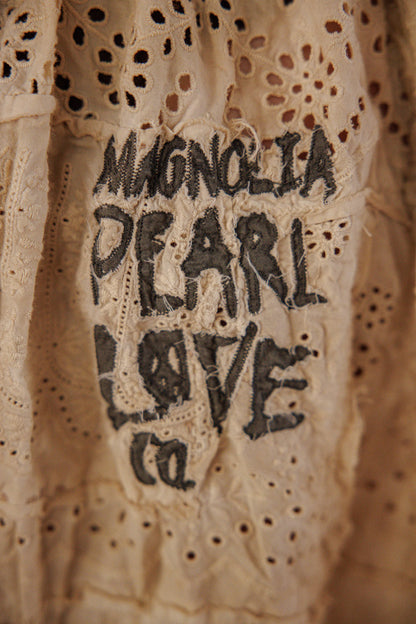 MAGNOLIA
PEARL
LOVE
co